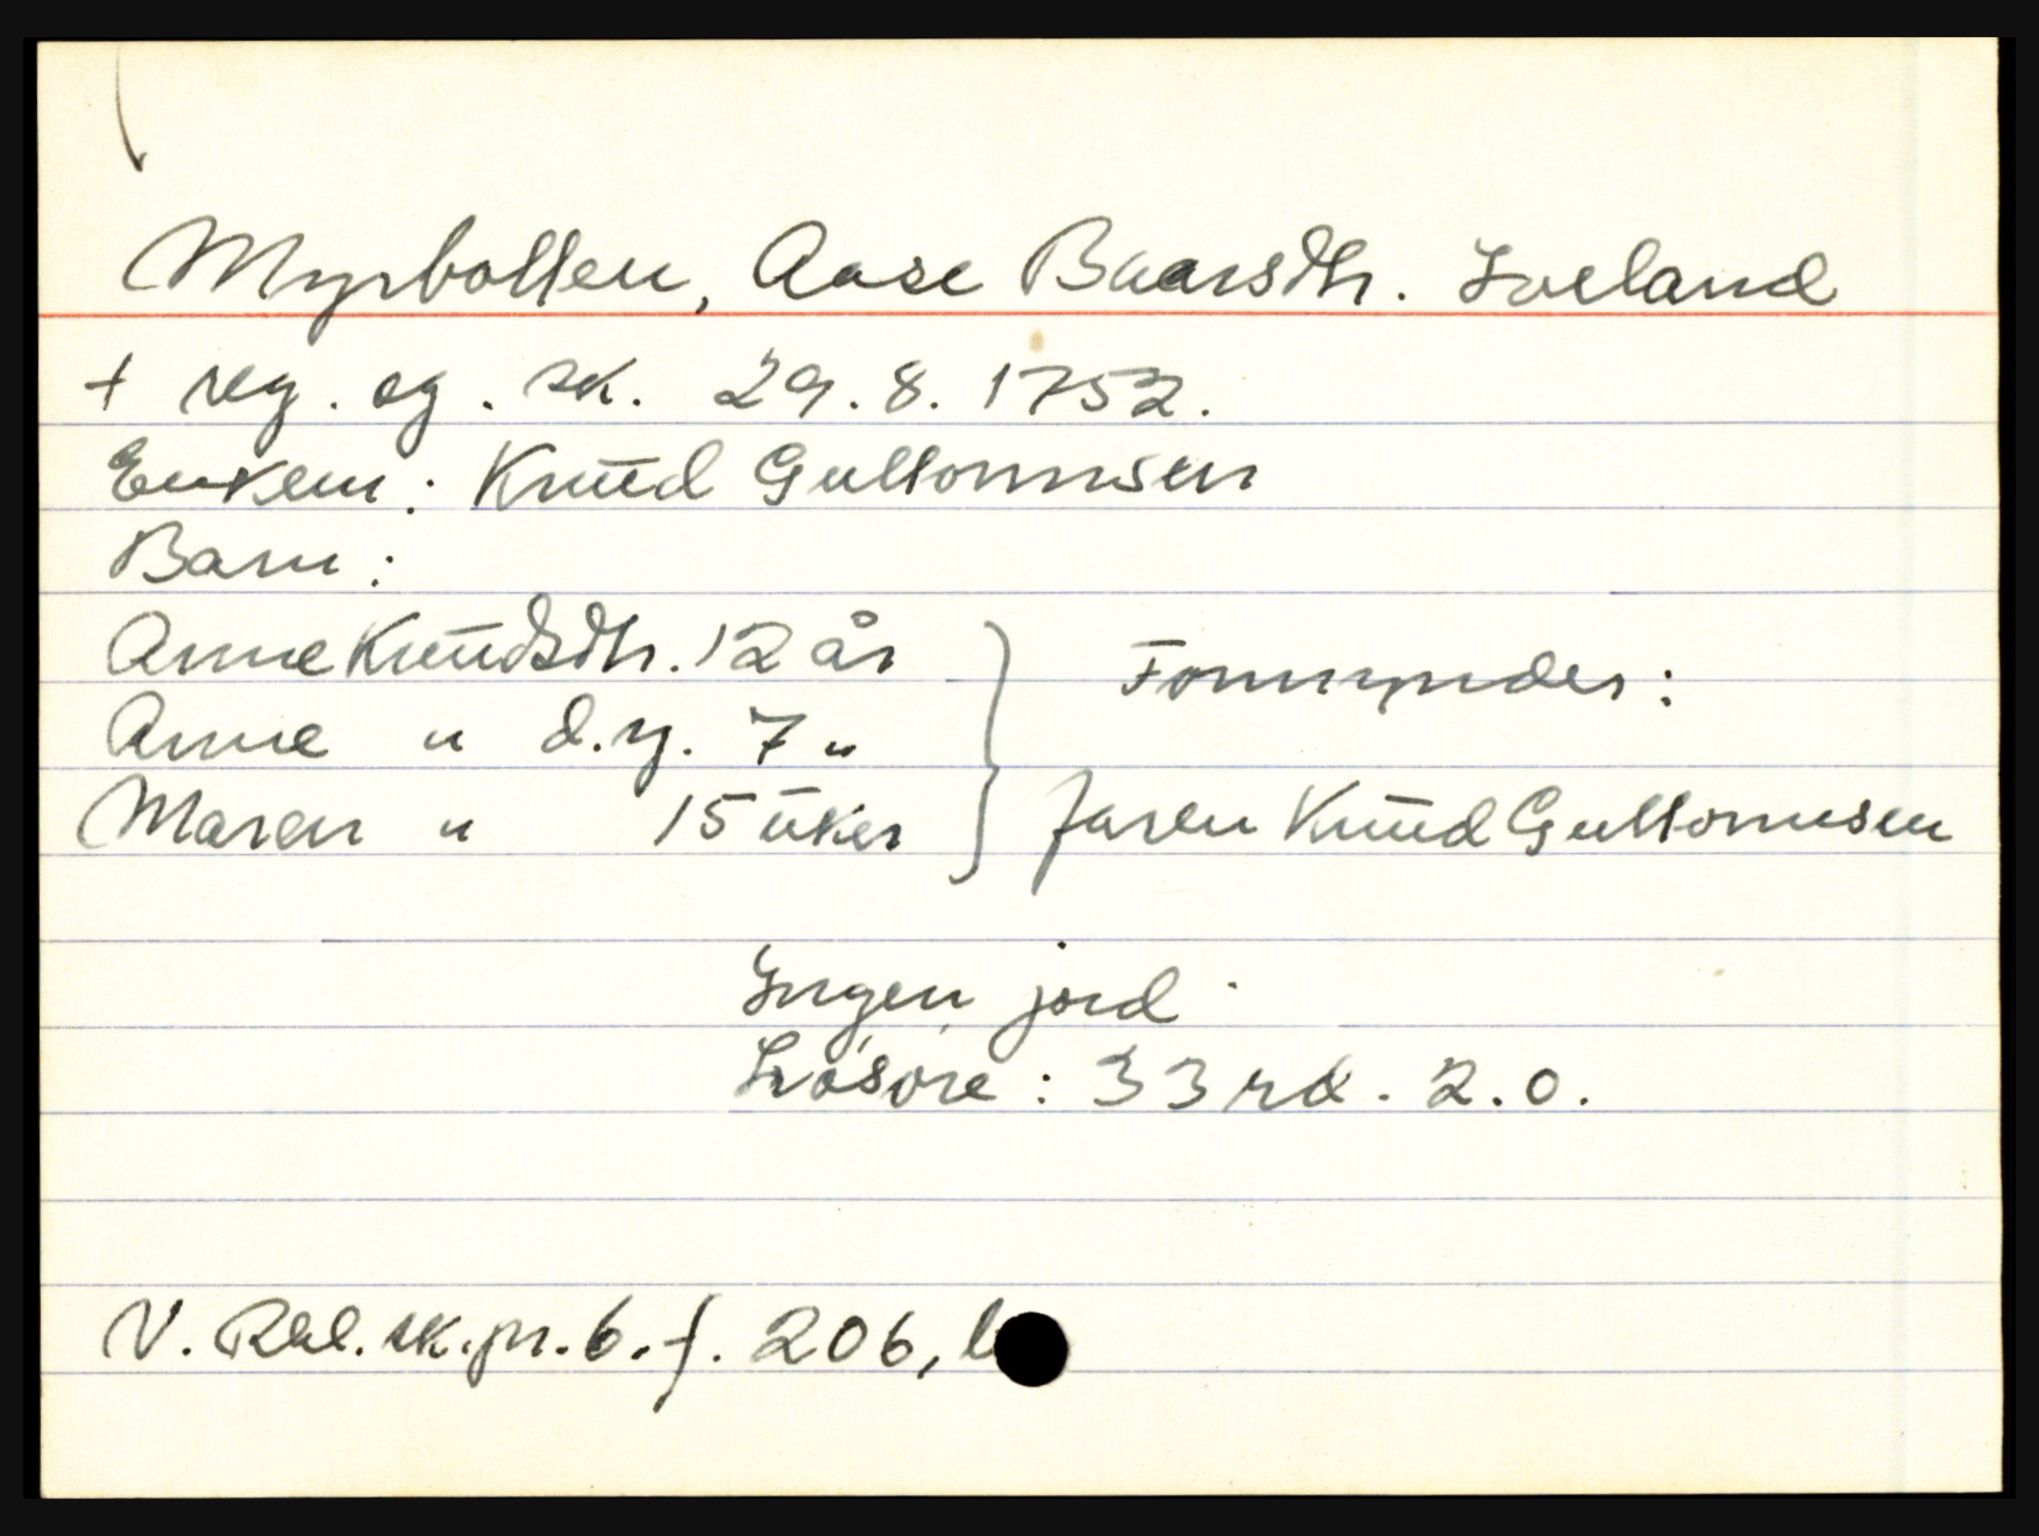 Myrbollen, Aase Baarsdtr. Iveland
+ reg. og. sk. 29.8.1752.
Enkem: Knud Gullormsen
Barn:
Anne Knudsdtr. 12 år } Formynder:
Anne " d.y. 7 "
Maren " 15 uker } faren Knud Gullormsen
Ingen jord
Løsøre: 33 rd. 2.0.
V. Rbl. sk.pr. 6. f. 206, b